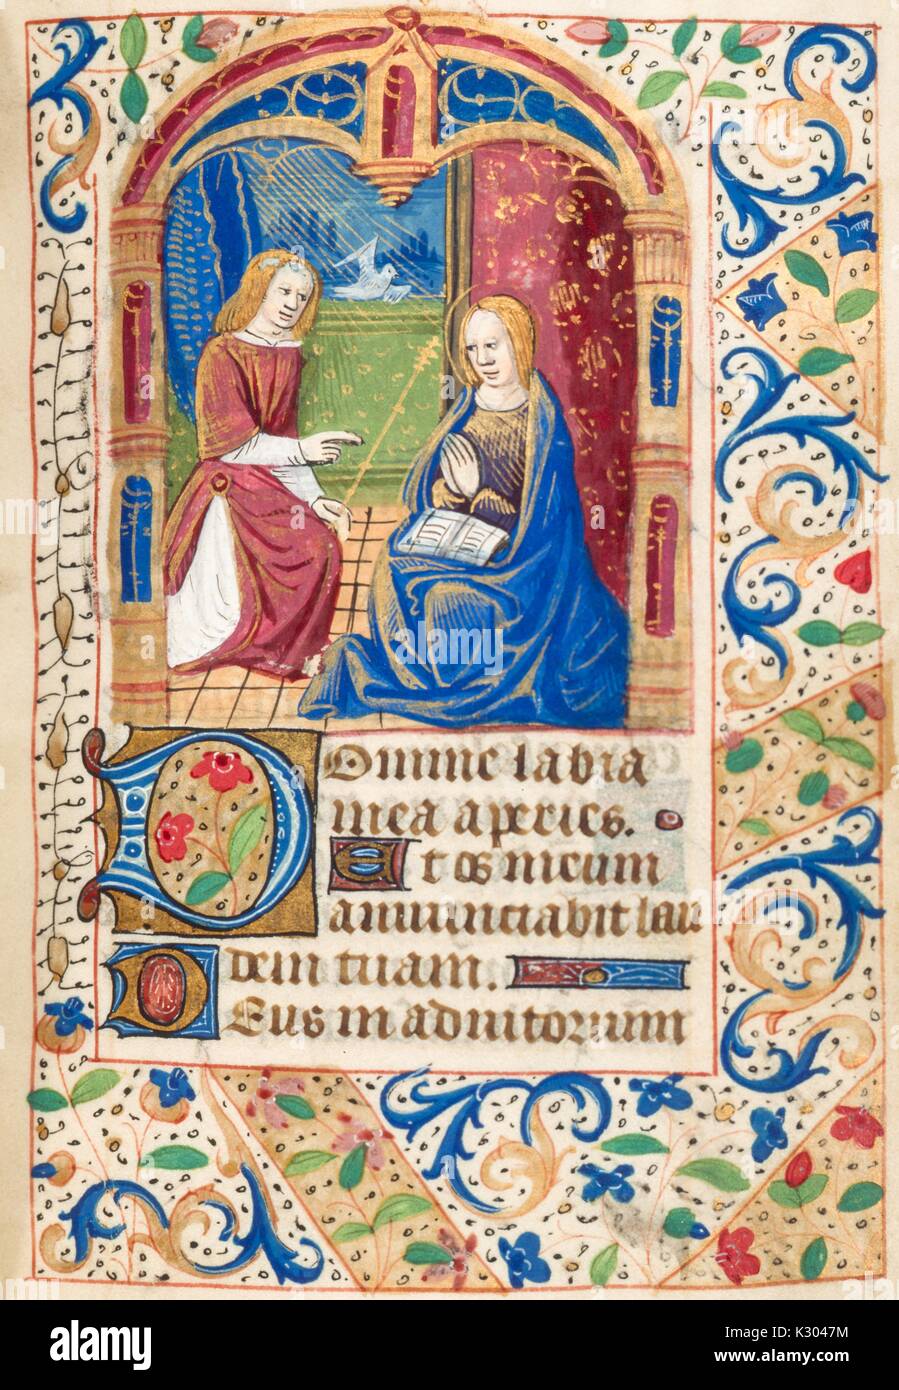 Domine labia
mea aperies.
Et os meum
annunciabit lau
dem tuam.
Deus in adiutorium
alamy stock photo
K3047M